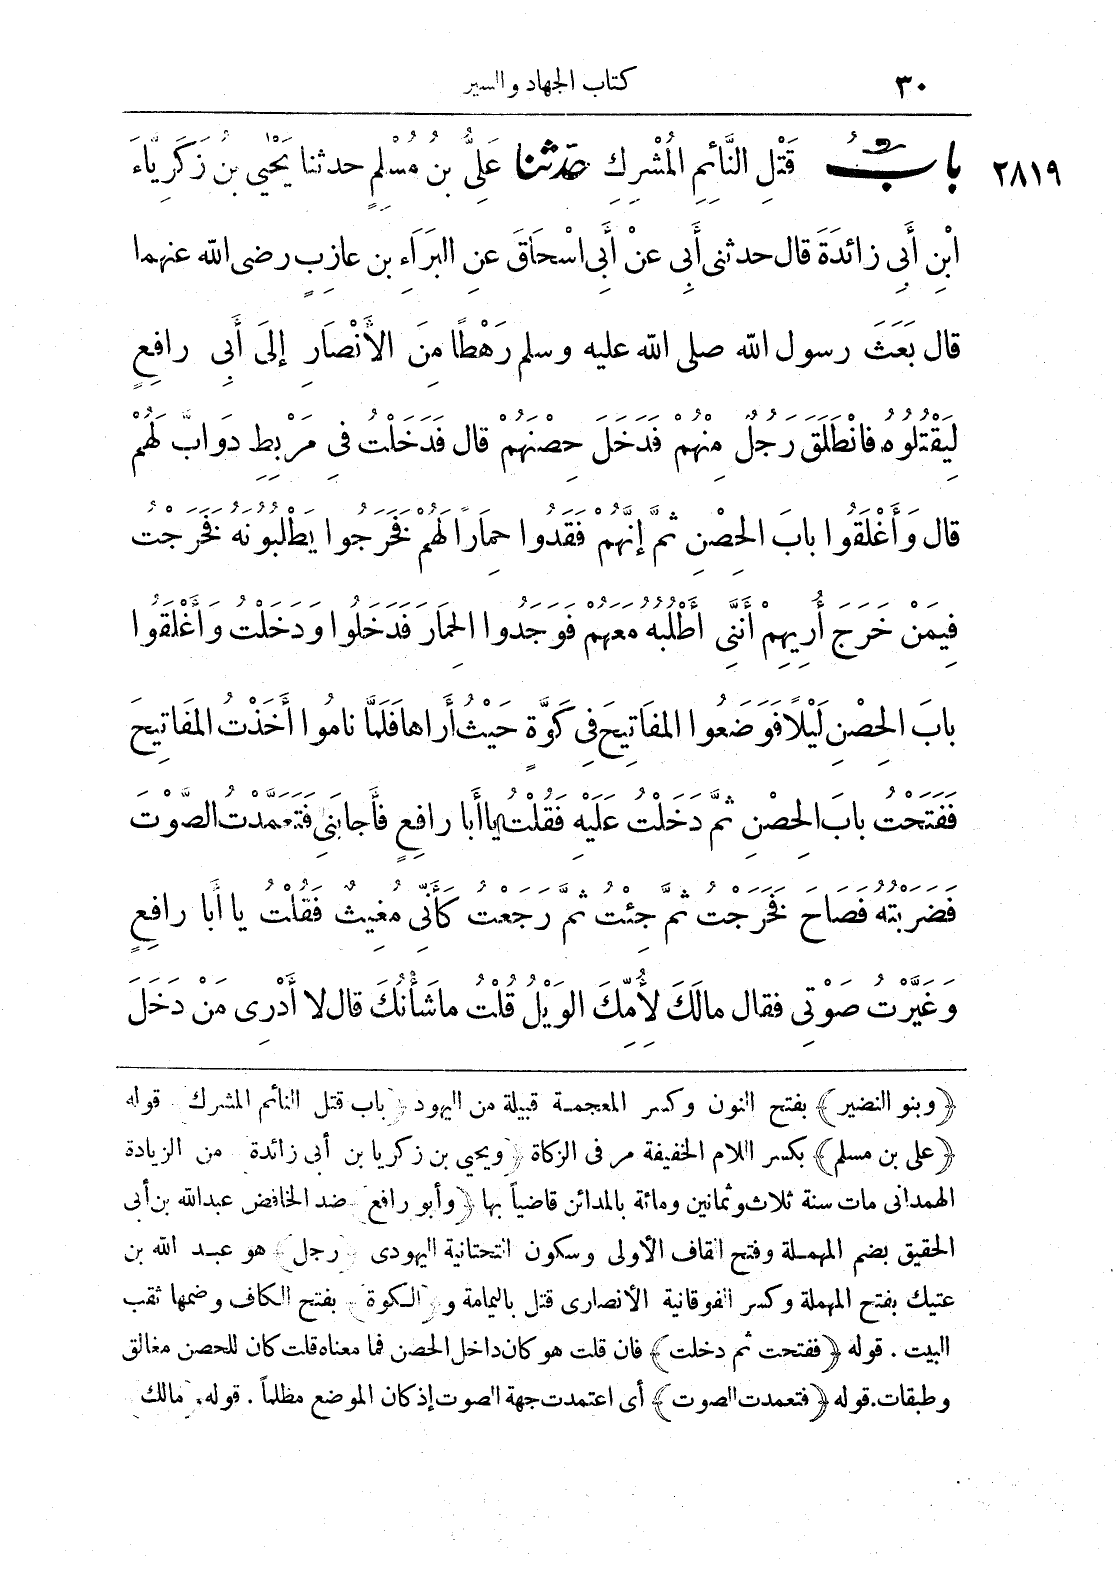 ٣٠ كتاب الجهاد والسير
٢٨١٩ بابُ قَتْلِ النَّائِمِ الْمُشْرِكِ حدثنا عَلِيُّ بنُ مُسْلِمٍ حدثنا يَحْيَى بنُ زَكَرِيَّاءَ
ابْنِ أَبِي زائدَةَ قال حدثنى أبِى عنْ أَبِى اسْحَاقَ عنِ البَرَاءِ بن عازِبٍ رضى الله عنهما
قال بَعَثَ رسول الله صلى الله عليه وسلم رَهْطًا مِنَ الأَنْصَارِ إلَى أَبِى رافِعٍ
لِيَقْتُلُوهُ فانْطَلَقَ رَجُلٌ مِنْهُمْ فَدَخَلَ حِصْنَهُمْ قال فَدَخَلْتُ فى مَرْبِطِ دَوابَّ لَهُمْ
قال وَأَغْلَقُوا بابَ الحِصْنِ ثمَّ إنَّهُمْ فَقَدُوا حِمَارًا لَهُمْ فَخَرَجُوا يَطْلُبُونَهُ فَخَرَجْتُ
فِيمَنْ خَرَجَ أُرِيهِمْ أَنَّنِى أَطْلُبُهُ معَهُمْ فَوَجَدُوا الحِمَارَ فَدَخَلُوا ودَخَلْتُ وَأَغْلَقُوا
بابَ الحِصْنِ لَيْلًا فَوَضَعُوا المَفَاتِيحَ فِى كَوَّةٍ حَيْثُ أَراها فَلَمَّا نامُوا أَخَذْتُ المَفَاتِيحَ
فَفَتَحْتُ بابَ الحِصْنِ ثمَّ دَخَلْتُ عَلَيْهِ فَقُلْتُ يا أَبا رافِعٍ فأَجابَنِى فَتَعَمَّدْتُ الصَّوْتَ
فَضَرَبْتُهُ فَصَاحَ فَخَرَجْتُ ثمَّ جِئْتُ ثمَّ رَجَعْتُ كَأَنِّى مُغِيثٌ فَقُلْتُ يا أَبا رافِعٍ
وَغَيَّرْتُ صَوْتِى فقال مالَكَ لِأُمِّكَ الوَيْلُ قُلْتُ ما شَأْنُكَ قال لا أَدْرِى مَنْ دَخَلَ
﴿وبنو النضير﴾ بفتح النون وكسر المعجمة قبيلة من اليهود ﴿باب قتل النائم المشرك﴾ قوله
﴿على بن مسلم﴾ بكسر اللام الخفيفة مر فى الزكاة ﴿ويحيى بن زكريا بن أبى زائدة﴾ من الزيادة
الهمدانى مات سنة ثلاث وثمانين ومائة بالمدائن قاضياً بها ﴿وأبو رافع﴾ ضد الخافض عبدالله بن أبى
الحقيق بضم المهملة وفتح القاف الأولى وسكون التحتانية اليهودى ﴿رجل﴾ هو عبد الله بن
عتيك بفتح المهملة وكسر الفوقانية الأنصارى قتل باليمامة و﴿الكوة﴾ بفتح الكاف وضمها ثقب
البيت . قوله ﴿ففتحت ثم دخلت﴾ فان قلت هو كان داخل الحصن فما معناه قلت كان للحصن مغالق
وطبقات. قوله ﴿فتعمدت الصوت﴾ أى اعتمدت جهة الصوت إذ كان الموضع مظلماً . قوله ﴿مالك